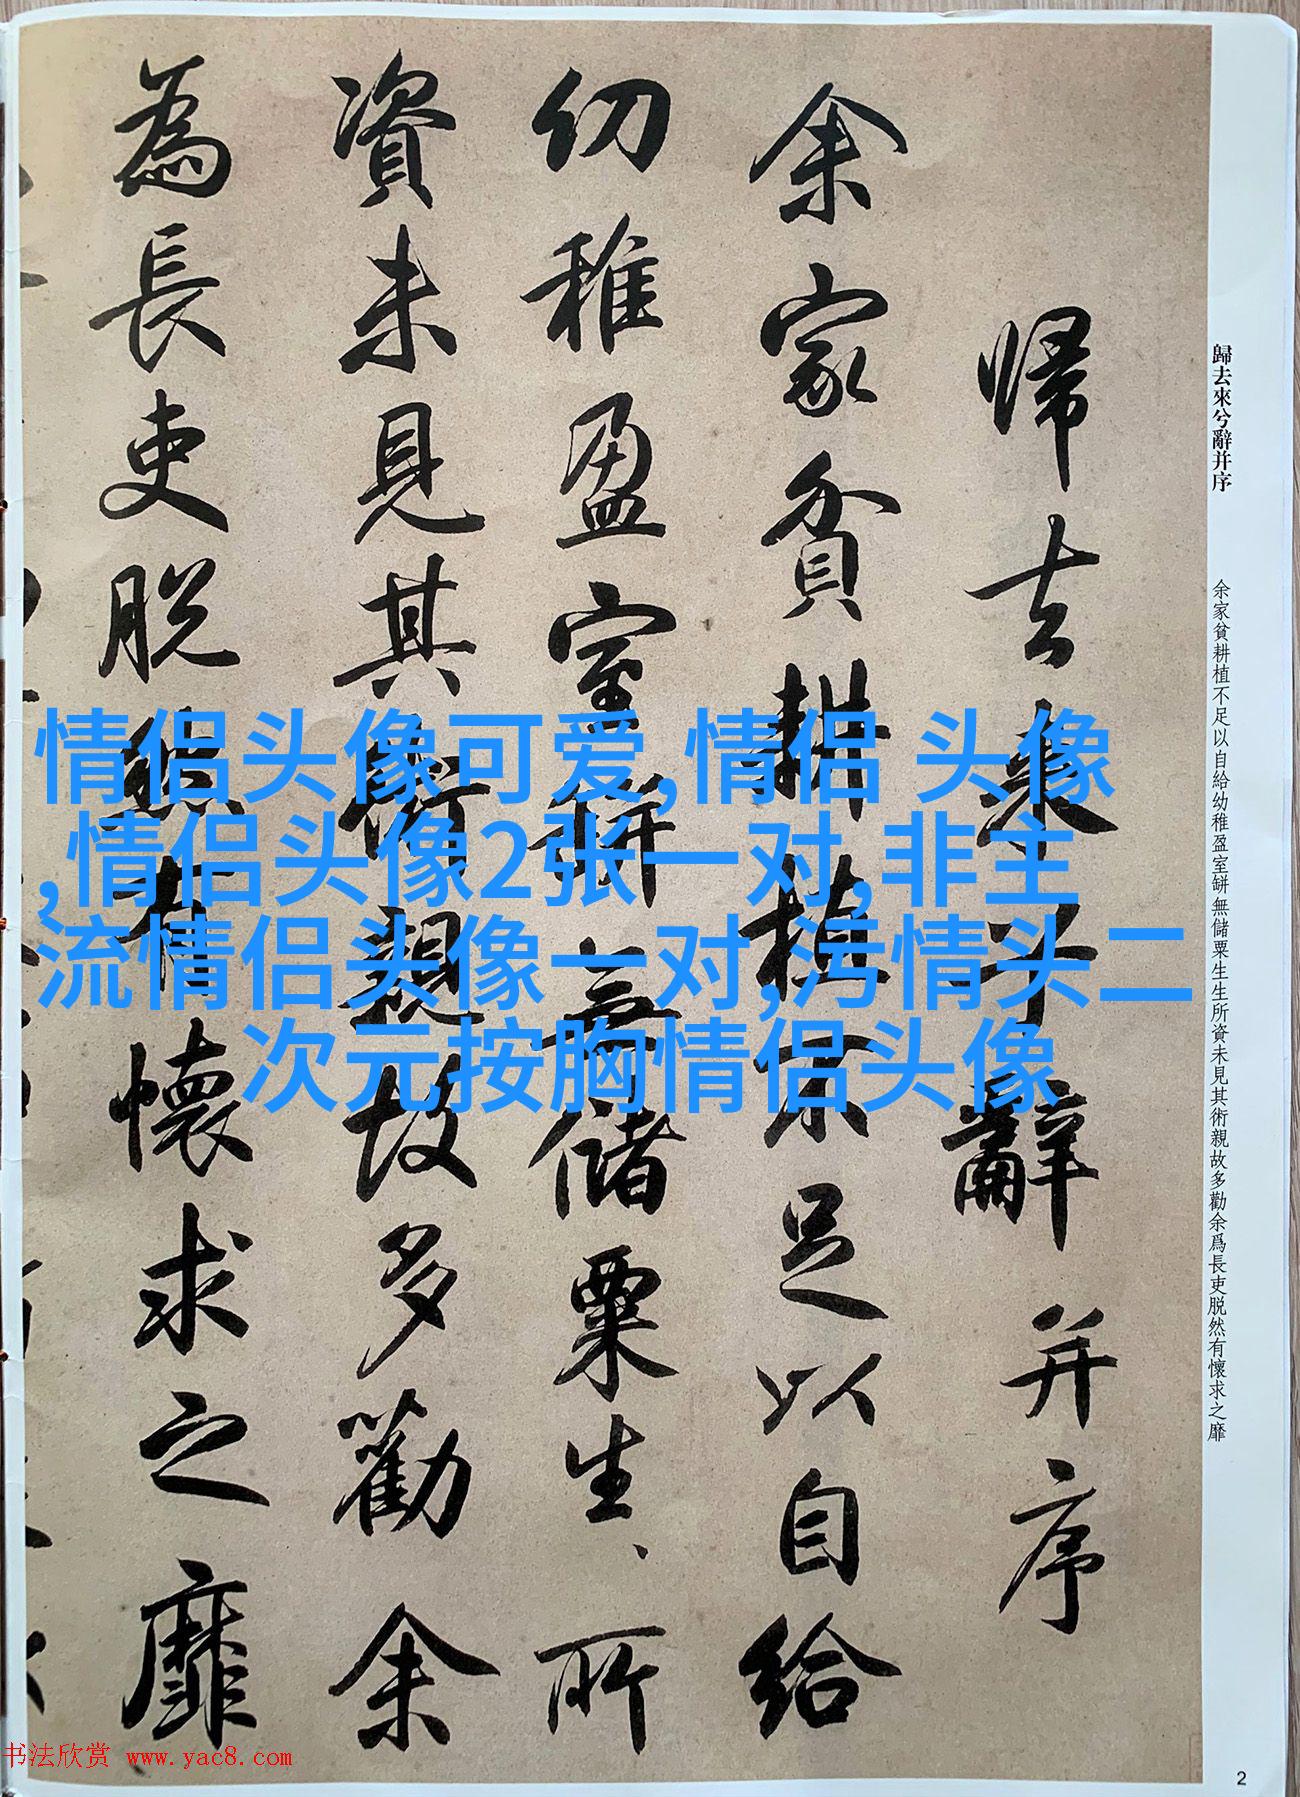 歸去來兮辭并序
余家貧耕植不足以自給幼稚盈室缾無儲粟生生所資未見其術親故多勸余爲長吏脱然有懷求之靡
帰去来兮辭并序
余家貧耕植不足以自給
幼稚盈室缾無儲粟生、所
資未見其術親故多勸余
為長吏脱然有懷求之靡
情侣头像可爱,情侣 头像
,情侣头像2张一对,非主
流情侣头像一对,污情头二
次元按胸情侣头像
书法欣赏 www.yac8.com
2